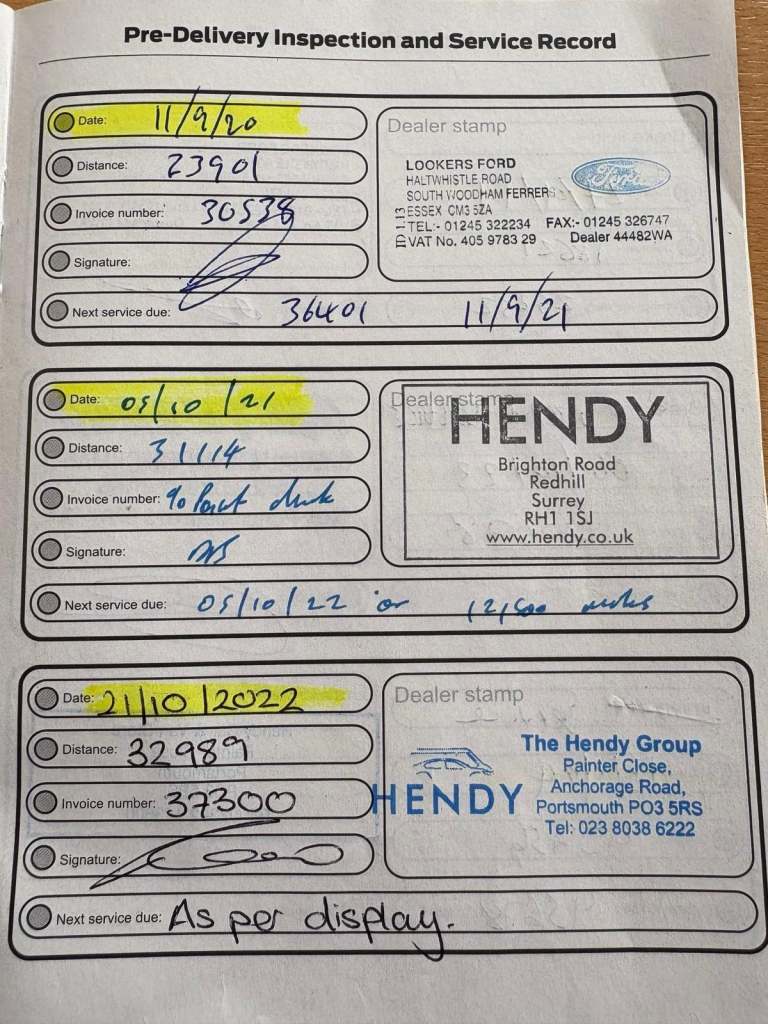 Pre-Delivery Inspection and Service Record
Date: 11/9/20
Distance: 23901
Invoice number: 30538
Signature:
Next service due: 36401 11/9/21
Dealer stamp
LOOKERS FORD
HALTWHISTLE ROAD
SOUTH WOODHAM FERRERS
ESSEX CM3 5ZA
TEL:- 01245 322234 FAX:- 01245 326747
VAT No. 405 9783 29 Dealer 44482WA
ID 113
Ford
Date: 05/10/21
Distance: 31114
Invoice number:
Signature:
Next service due: 05/10/22 or 12,500 miles
Dealer stamp
HENDY
Brighton Road
Redhill
Surrey
RH1 1SJ
www.hendy.co.uk
Date: 21/10/2022
Distance: 32989
Invoice number: 37300
Signature:
Next service due: As per display.
Dealer stamp
HENDY
The Hendy Group
Painter Close,
Anchorage Road,
Portsmouth PO3 5RS
Tel: 023 8038 6222